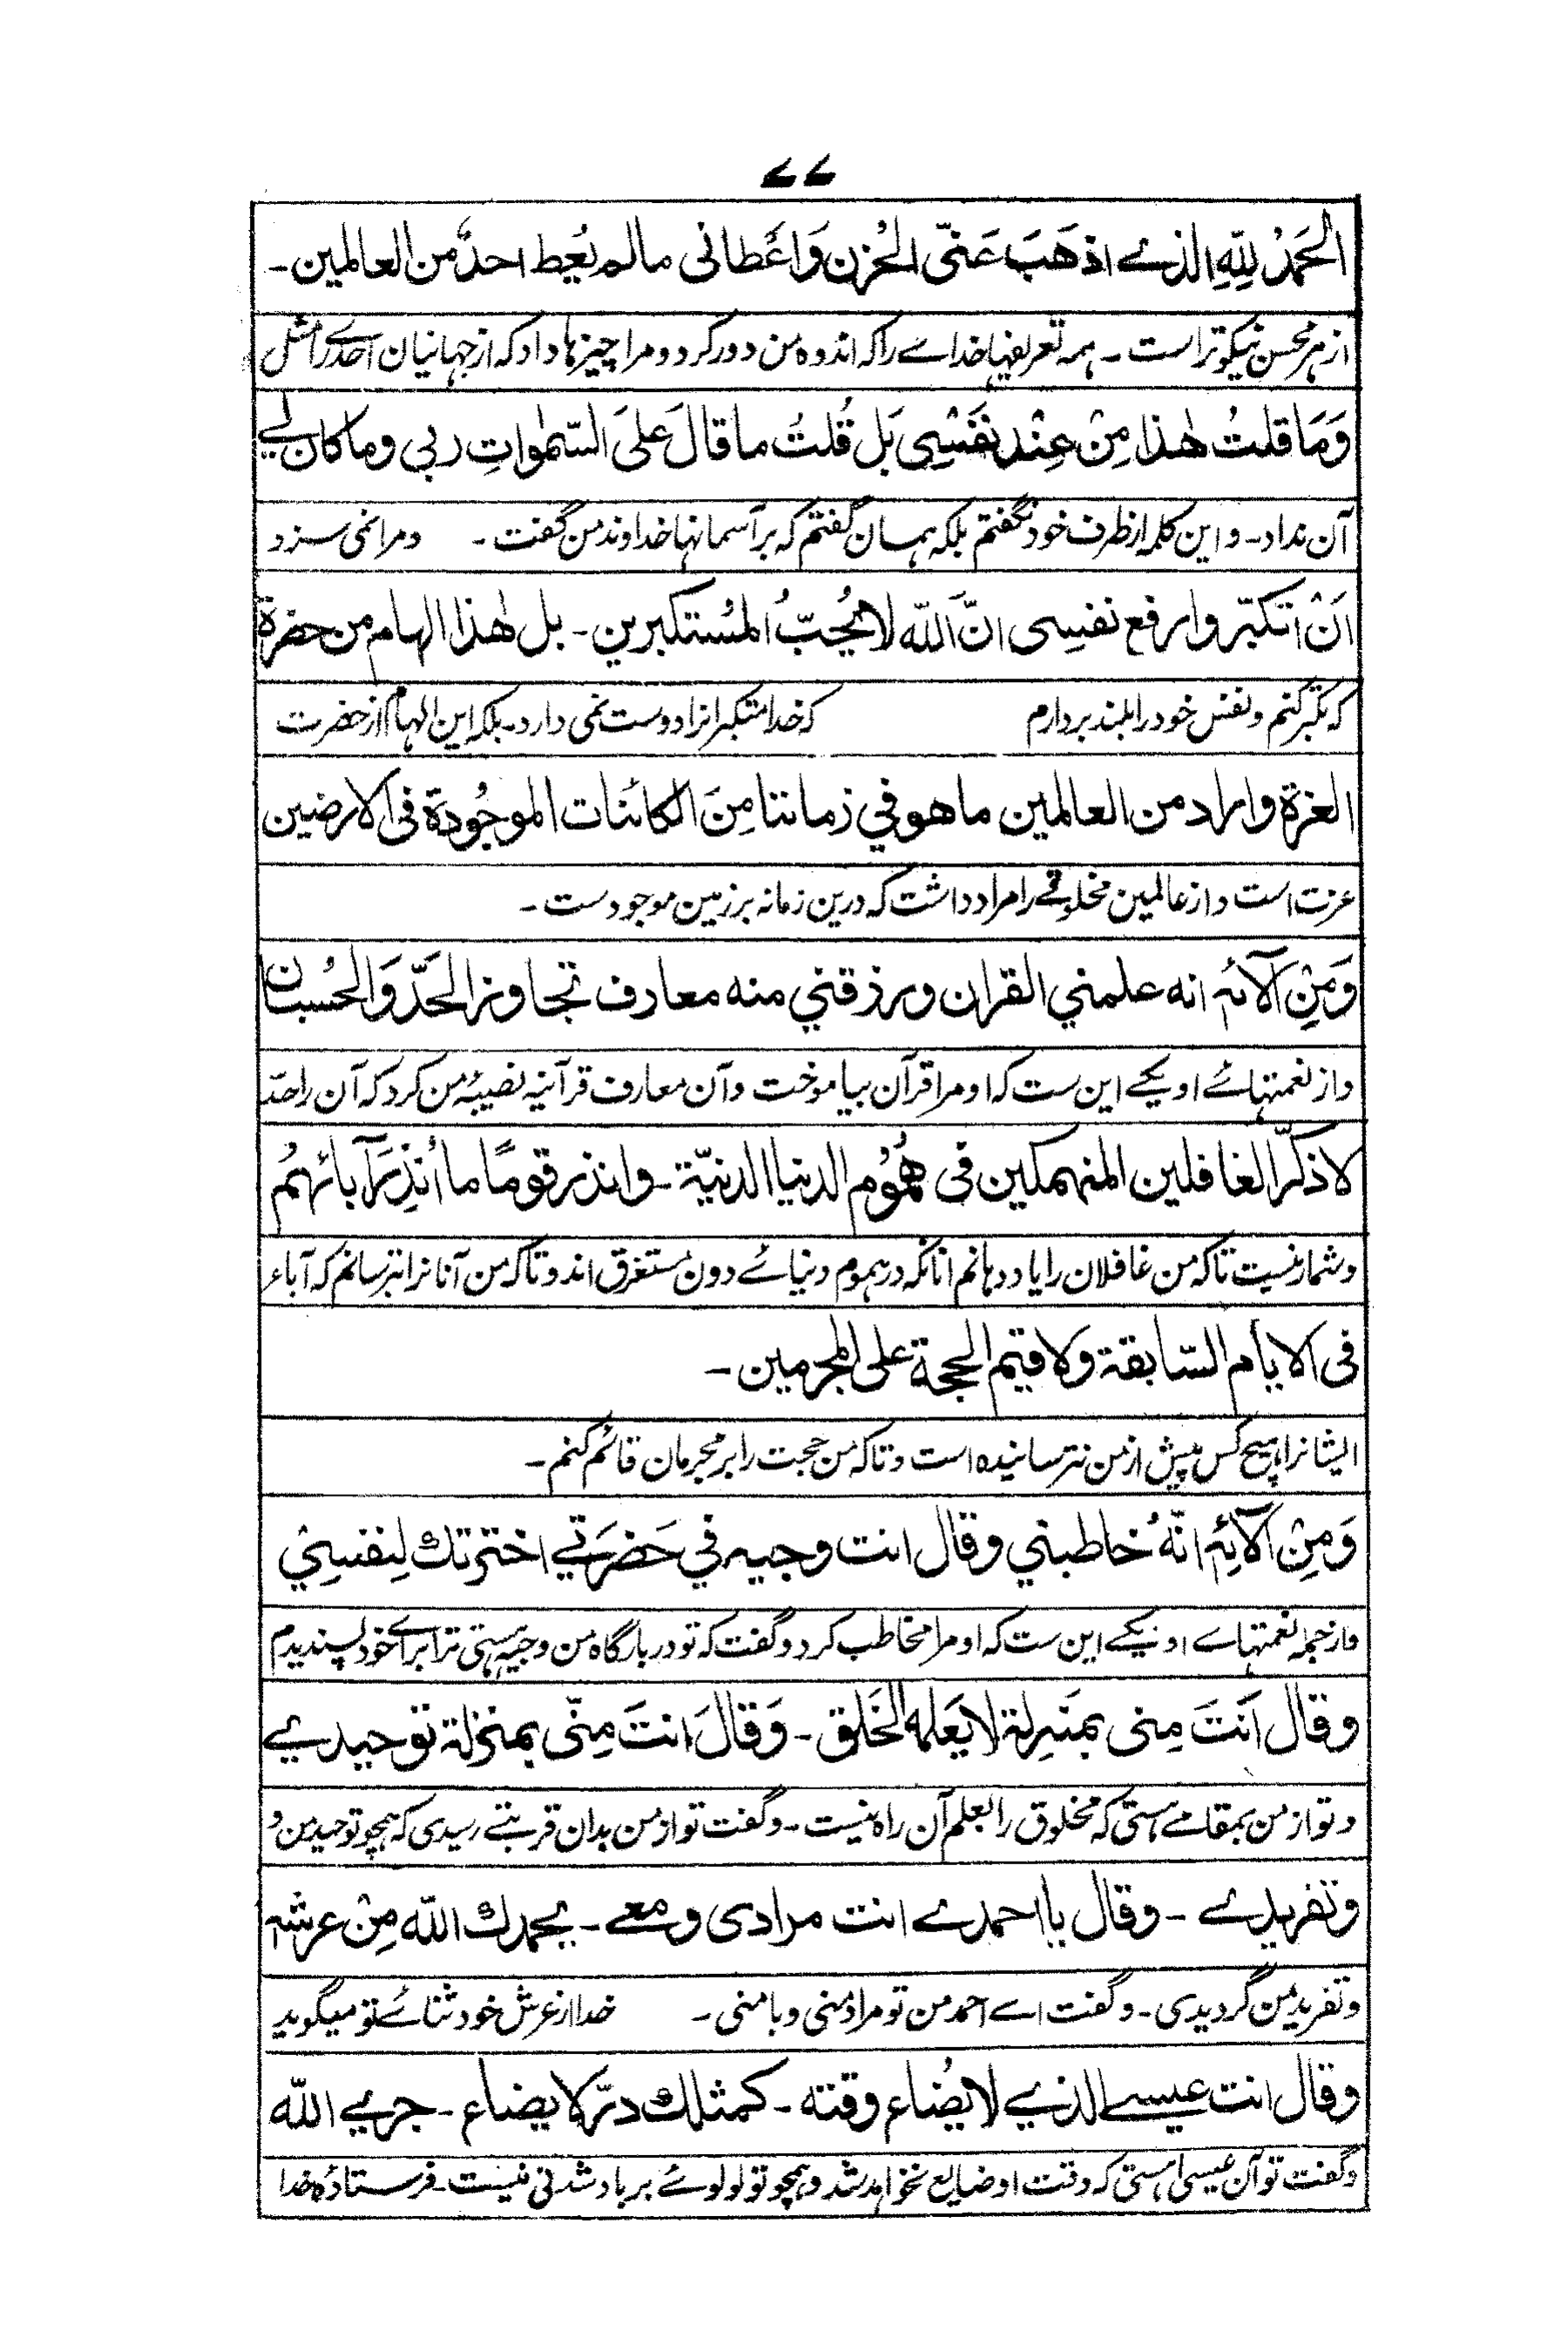 ۷۷
الحَمدُ لِلّٰهِ الذے اذهَبَ عَنّی الحُزن وَاَعْطانی مالم یُعط احدٌ من العالمین۔
از ہر محسن نیکوتر است ۔ ہمہ تعریفہا خداے را کہ اندوہ من دور کرد و مرا چیزہا داد کہ از جہانیان احدے را مثل
وَمَا قلتُ هٰذا مِنْ عِنْد نَفْسِی بَل قُلتُ ما قالَ عَلیَ السّمٰواتِ ربی وما کان لے
آن نداد۔ و این کلمہ از طرف خود نگفتم بلکہ ہمان گفتم کہ بر آسمانہا خداوند من گفت ۔ و مرا نمی سزد
اَنْ اتکبّر وارفع نفسِی انَّ اللّٰه لا یُحِبُّ المُستکبرین۔ بل هٰذا الهام من حضرة
کہ تکبر کنم و نفس خود را بلند بردارم کہ خدا متکبرانرا دوست نمی دارد۔ بلکہ این الہام از حضرت
العزة واراد من العالمین ما هو في زماننا مِنَ الکائنات الموجُودة فی الارضین
عزت است و از عالمین مخلوقے را مراد داشت کہ درین زمانہ بر زمین موجود ست ۔
وَمِنْ آلائہٖ انه علمني القران ورزقني منه معارف تجاوز الحَدّ وَالحُسبان
و از نعمتہائے او یکے این ست کہ او مرا قرآن بیاموخت و آن معارف قرآنیہ نصیبۂ من کرد کہ آن را حدّ
لاذکّر الغافلین المنهمکین فی هُمُوم الدنیا الدنیّة ۔ وانذر قومًا ما اُنذِرَ آبائهُم
و شمار نیست تاکہ من غافلان را یاد دہانم آنانکہ در ہموم دنیائے دون مستغرق اند و تاکہ من آنانرا بترسانم کہ آباء
فی الایام السّابقة ولاقیم الحجة علی المجرمین ۔
ایشانرا ہیچ کس پیش از من نترسانیدہ است و تاکہ من حجت را بر مجرمان قائم کنم ۔
وَمِنْ آلائِہٖ انّهُ خاطبني وقال انت وجیه في حَضرَتے اخترتك لِنفسِيْ
و از جملہ نعمتہاے او یکے این ست کہ او مرا مخاطب کرد و گفت کہ تو در بارگاہ من وجیہ ہستی ترا براے خود پسندیدم
وقال اَنتَ مِنی بمَنزِلة لا یَعلمه الخَلق ۔ وَقالَ انتَ مِنّی بمنزلة توحیدے
و تو از من بمقامے ہستی کہ مخلوق را بعلم آن راہ نیست ۔ و گفت تو از من بدان قربتے رسیدی کہ ہمچو توحید من و
وتفریدے ۔ وقال یا احمدے انت مرادی ومعے ۔ یحمدك اللّٰه مِنْ عرشہ
و تفرید من گردیدی ۔ و گفت اے احمد من تو مراد منی و با منی ۔ خدا از عرش خود ثنائے تو میگوید
وقال انت عیسے الذے لا یُضاع وقته ۔ کمثلك درّ لا یضاع ۔ جرے اللّٰه
و گفت تو آن عیسی ہستی کہ وقت او ضایع نخواہد شد و ہمچو تو لولوئے برباد شدنی نیست ۔ فرستادۂ خدا